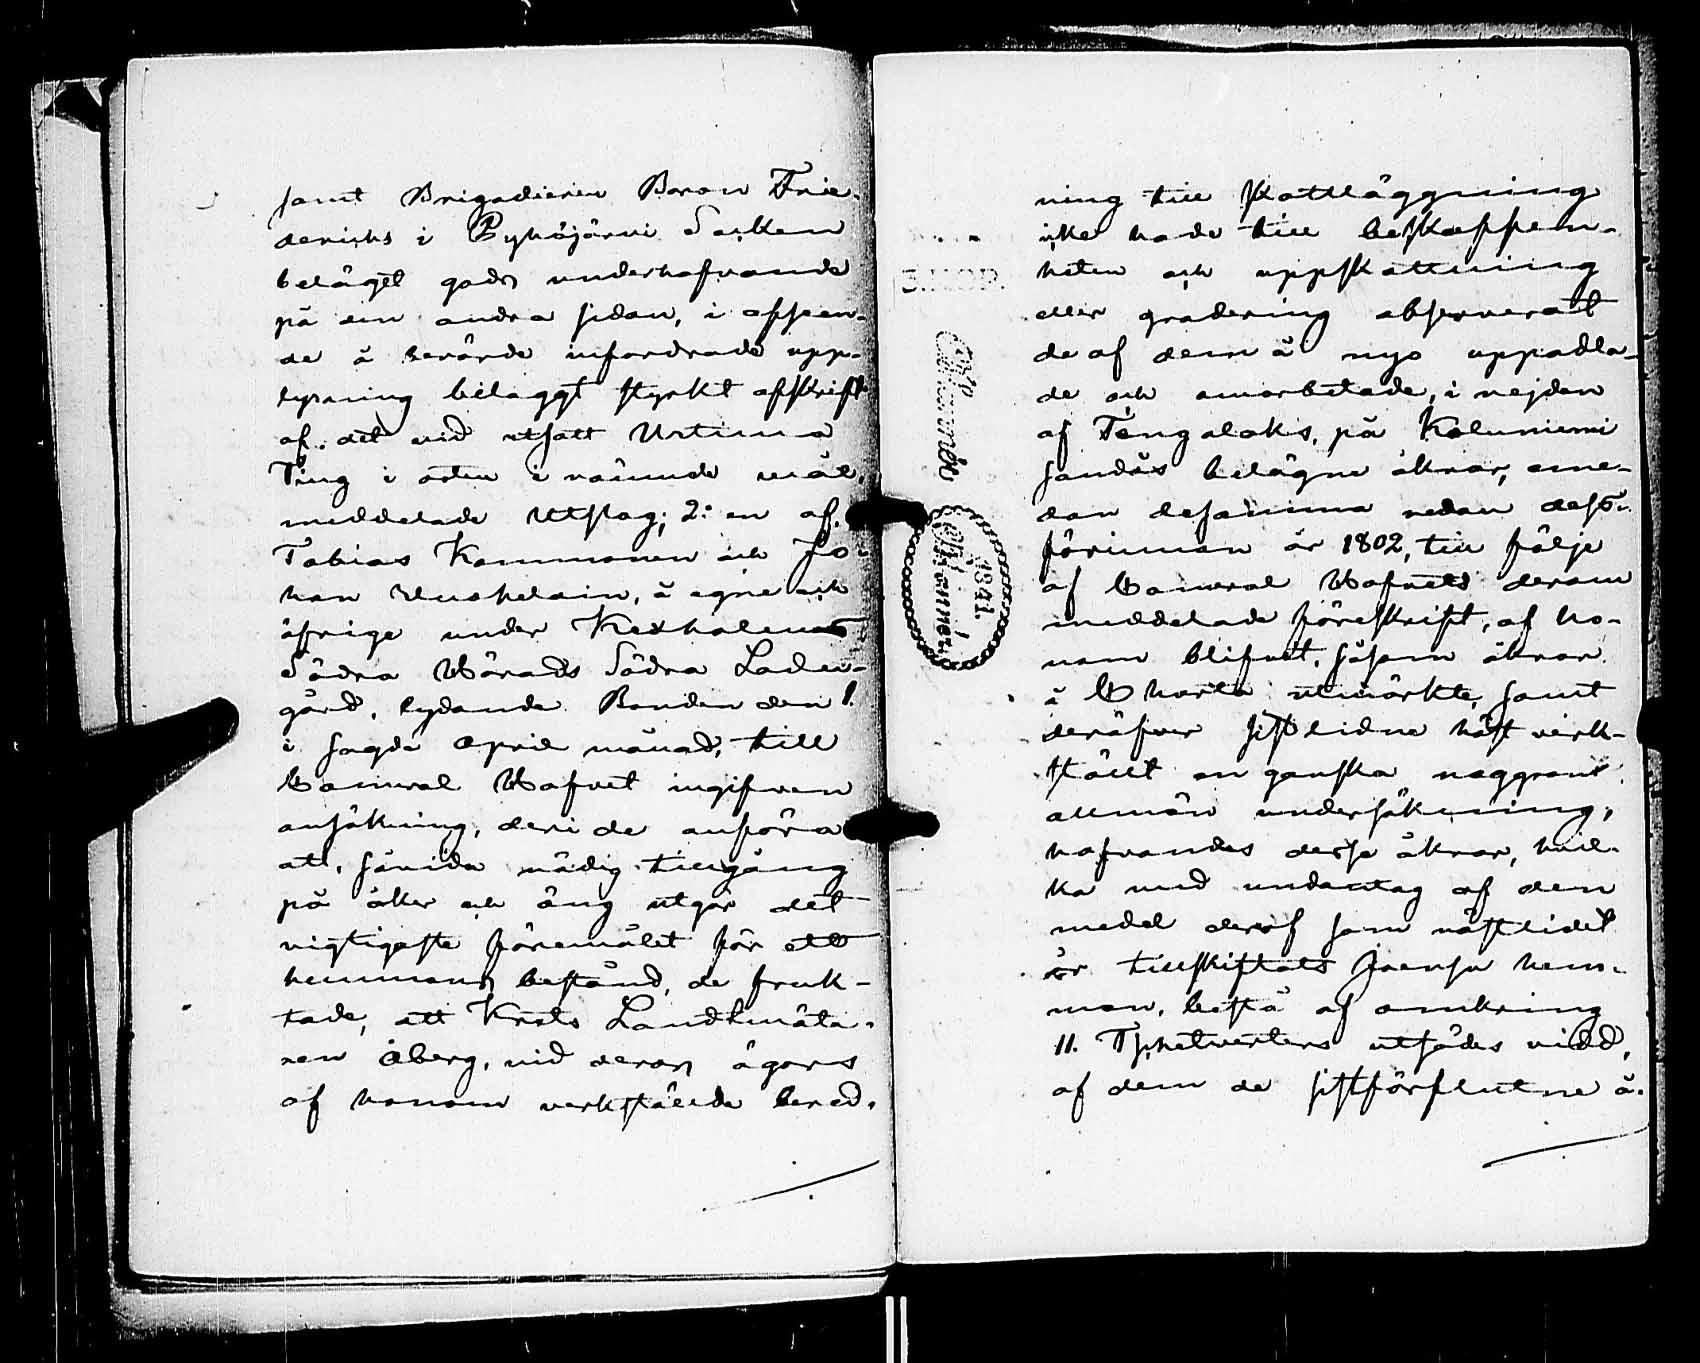 samt Brigadieren Baron Frie-
derichs i Pyhäjärvi Socken
belägit gods underhafvande
på den andra sidan, i afseen-
de å berörde infordrade upp-
lysning bilaggt styrkt afskrift
af det vid utsatt Urtima
Ting i orten i nämnde mål,
meddelade Utslag; 2: en af
Tobias Kommonen och Jo-
han, å egne och
öfrige under Kexholms
Södra Härads Södra Laden-
gård, lydande Bönder den 1.
i sagde April månad, till
Cameral Hofvet ingifven
ansökning, deri de anföra
att, såvida nödig tillgång
på åker och äng utgör det
vigtigaste föremålet för ett
hemmans bestånd, de fruk-
tade, att Krono Landtmäta-
ren Åberg, vid deras ägors
af honom verkstälde bered-
ning till Skattläggning
icke hade till beskaffen-
heten och uppskattning
eller gradering observerat
de af dem å nyo uppodla-
de och omarbetade, i nejden
af Tengalaks, på Kaluniemi
sandås belägne åkrar, eme-
dan desamma redan dess-
förinnan år 1802, till följe
af Cameral Hofvets derom
meddelade föreskrift, af ho-
nom blifvit, såsom åkrar
å Charta utmärkte, samt
deröfver sistlidne höst verk-
stält en ganska noggrann
allmän undersökning,
hafvandes desse åkrar, hvil-
ka med undantag af den
medel deraf som nästlidet
år tillskiftats Joensu hem-
man, bestå af omkring
11. Tschetverters utsädes vidd,
af dem de sistförflutne å-
1841.